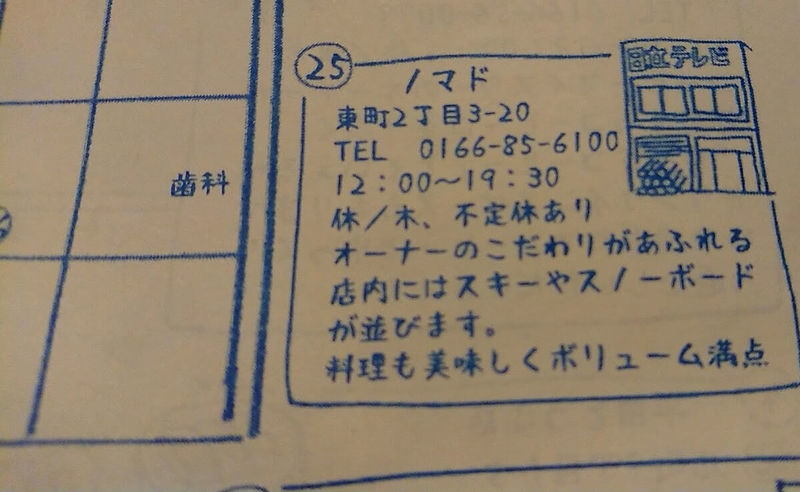 25
日立テレビ
ノマド
東町2丁目3-20
TEL 0166-85-6100
12:00~19:30
休/木、不定休あり
オーナーのこだわりがあふれる
店内にはスキーやスノーボード
が並びます。
料理も美味しくボリューム満点
歯科